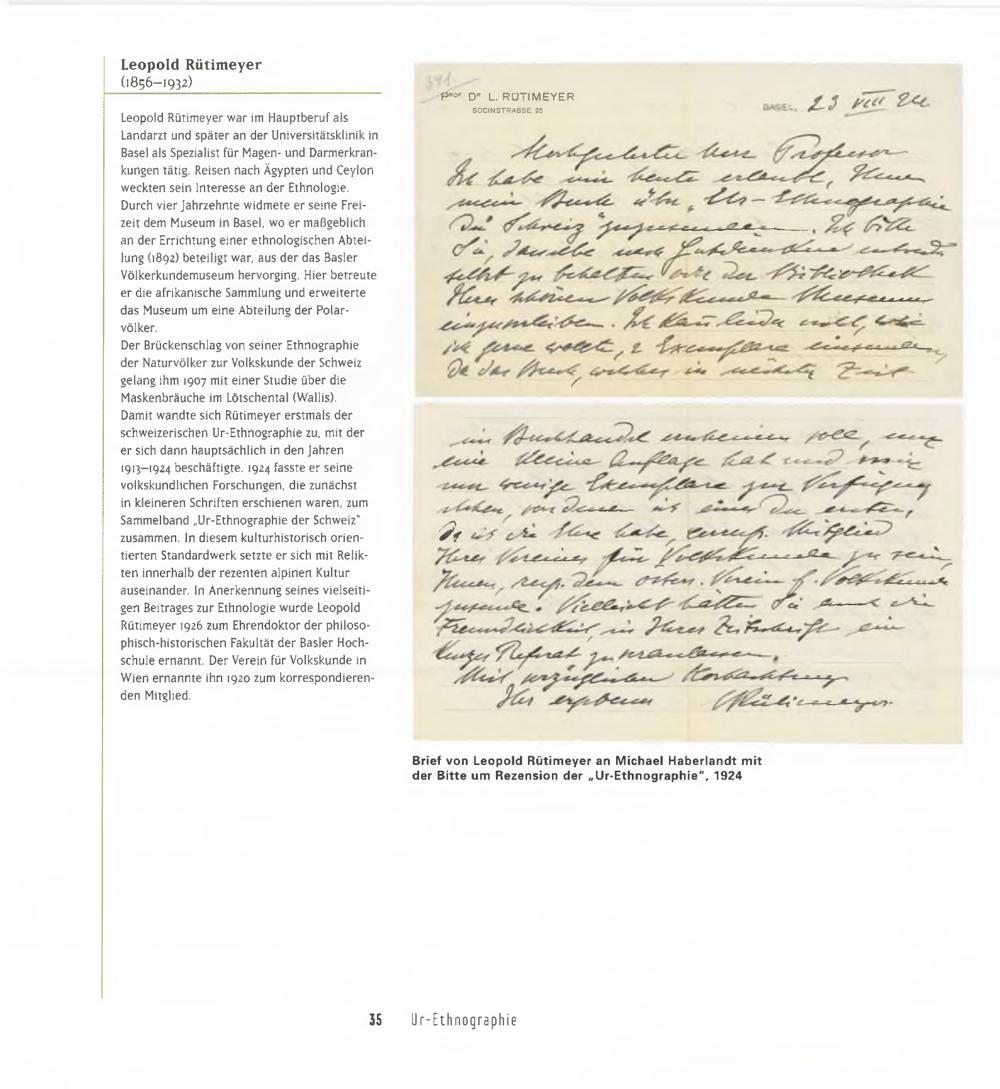 Leopold Rütimeyer
(1856–1932)
Leopold Rütimeyer war im Hauptberuf als
Landarzt und später an der Universitätsklinik in
Basel als Spezialist für Magen- und Darmerkran-
kungen tätig. Reisen nach Ägypten und Ceylon
weckten sein Interesse an der Ethnologie.
Durch vier Jahrzehnte widmete er seine Frei-
zeit dem Museum in Basel, wo er maßgeblich
an der Errichtung einer ethnologischen Abtei-
lung (1892) beteiligt war, aus der das Basler
Völkerkundemuseum hervorging. Hier betreute
er die afrikanische Sammlung und erweiterte
das Museum um eine Abteilung der Polar-
völker.
Der Brückenschlag von seiner Ethnographie
der Naturvölker zur Volkskunde der Schweiz
gelang ihm 1907 mit einer Studie über die
Maskenbräuche im Lötschental (Wallis).
Damit wandte sich Rütimeyer erstmals der
schweizerischen Ur-Ethnographie zu, mit der
er sich dann hauptsächlich in den Jahren
1913–1924 beschäftigte. 1924 fasste er seine
volkskundlichen Forschungen, die zunächst
in kleineren Schriften erschienen waren, zum
Sammelband „Ur-Ethnographie der Schweiz"
zusammen. In diesem kulturhistorisch orien-
tierten Standardwerk setzte er sich mit Relik-
ten innerhalb der rezenten alpinen Kultur
auseinander. In Anerkennung seines vielseiti-
gen Beitrages zur Ethnologie wurde Leopold
Rütimeyer 1926 zum Ehrendoktor der philoso-
phisch-historischen Fakultät der Basler Hoch-
schule ernannt. Der Verein für Volkskunde in
Wien ernannte ihn 1920 zum korrespondieren-
den Mitglied.
341.
PROF DR L. RÜTIMEYER
SOCINSTRASSE 25
BASEL, 23 VIII 24
Hochgeehrter Herr Professor
Ich habe mir heute erlaubt, Ihnen
mein Buch über „Ur-Ethnographie
der Schweiz" zuzusenden. Ich bitte
Sie, dasselbe nach Gutdünken entweder
selbst zu behalten oder der Bibliothek
Ihres schönen Volkskunde Museums
einzuverleiben. Ich kann leider nicht, wie
ich gerne wollte, 2 Exemplare einsenden,
da das Buch, welches in nächster Zeit
im Buchhandel erscheinen soll, nur
eine kleine Auflage hat und mir
nur wenige Exemplare zur Verfügung
stehen, von denen ich eines der ersten,
da ich die Ehre habe, corresp. Mitglied
Ihres Vereines für Volkskunde zu sein,
Ihnen, resp. dem österr. Verein f. Volkskunde
zusende. Vielleicht hätten Sie auch die
Freundlichkeit, in Ihrer Zeitschrift ein
kurzes Referat zu veranlassen.
Mit vorzüglicher Hochachtung
Ihr ergebener LRütimeyer
Brief von Leopold Rütimeyer an Michael Haberlandt mit
der Bitte um Rezension der „Ur-Ethnographie", 1924
35 Ur-Ethnographie